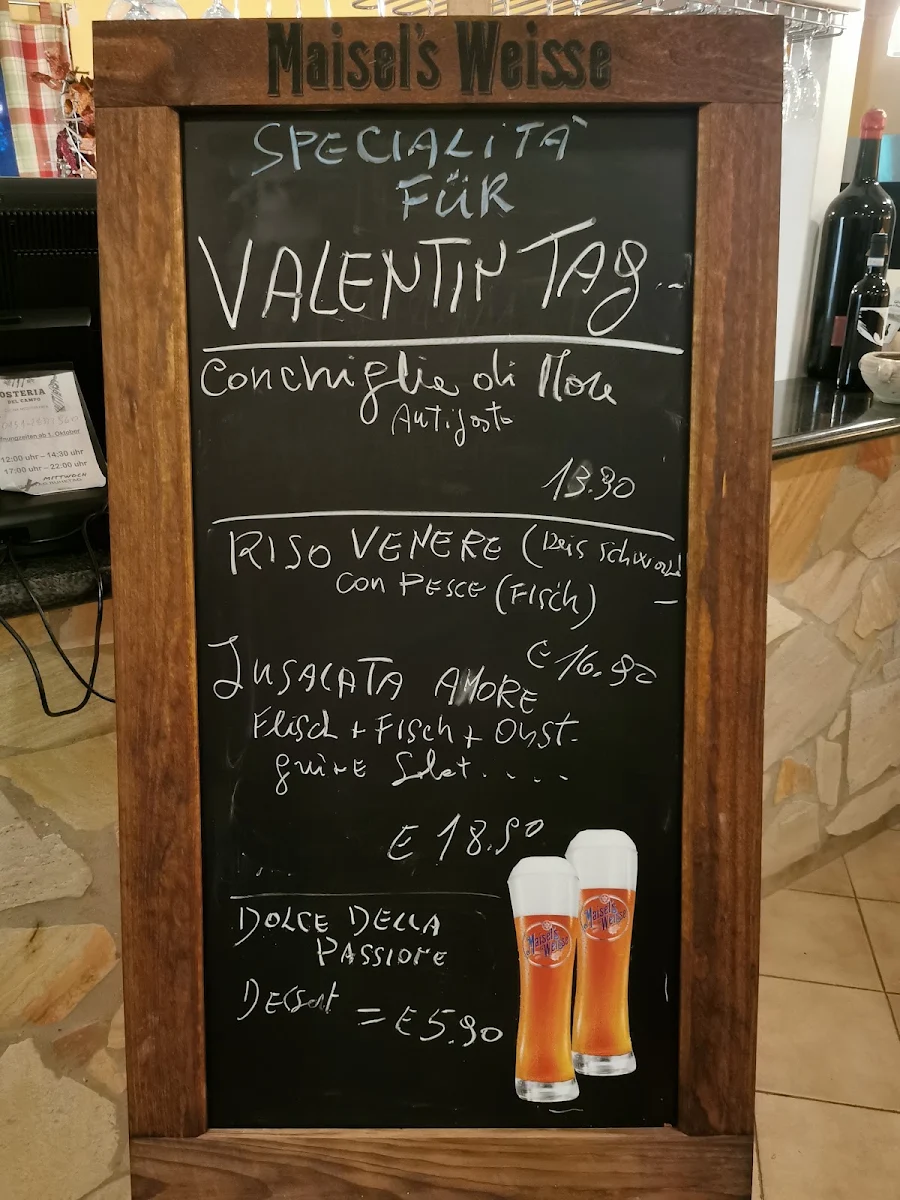 Maisel's Weisse
SPECIALITÀ
FÜR
VALENTIN TAG
Conchiglie di Mare
Antipasto
13.90
RISO VENERE (Reis Schwarz)
CON PESCE (FISCH)
€ 16.90
INSALATA AMORE
Fleisch + FISCH + Obst
grüne Salat....
€ 18.90
DOLCE DELLA
PASSIONE
Dessert = € 5.90
Maisel's
Weisse
Maisel's
Weisse
OSTERIA
DEL CAMPO
ab 1. Oktober
12:00 uhr – 14:30 uhr
17:00 uhr – 22:00 uhr
MITTWOCH